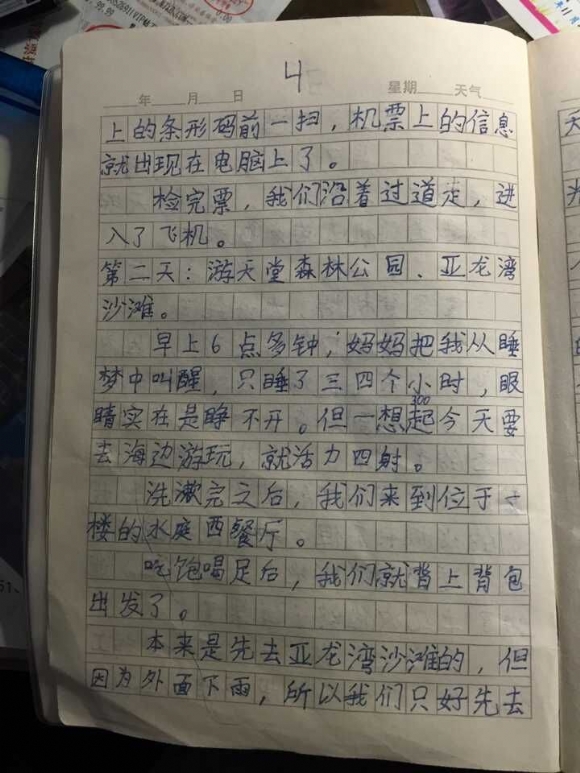 4
年 月 日 星期 天气
上的条形码前一扫，机票上的信息
就出现在电脑上了。
检完票，我们沿着过道走，进
入了飞机。
第二天：游天堂森林公园、亚龙湾
沙滩。
早上6点多钟，妈妈把我从睡
梦中叫醒，只睡了三四个小时，眼
300
睛实在是睁不开。但一想起今天要
去海边游玩，就活力四射。
洗漱完之后，我们来到位于一
楼的水庭西餐厅。
吃饱喝足后，我们就背上背包
出发了。
本来是先去亚龙湾沙滩的，但
因为外面下雨，所以我们只好先去